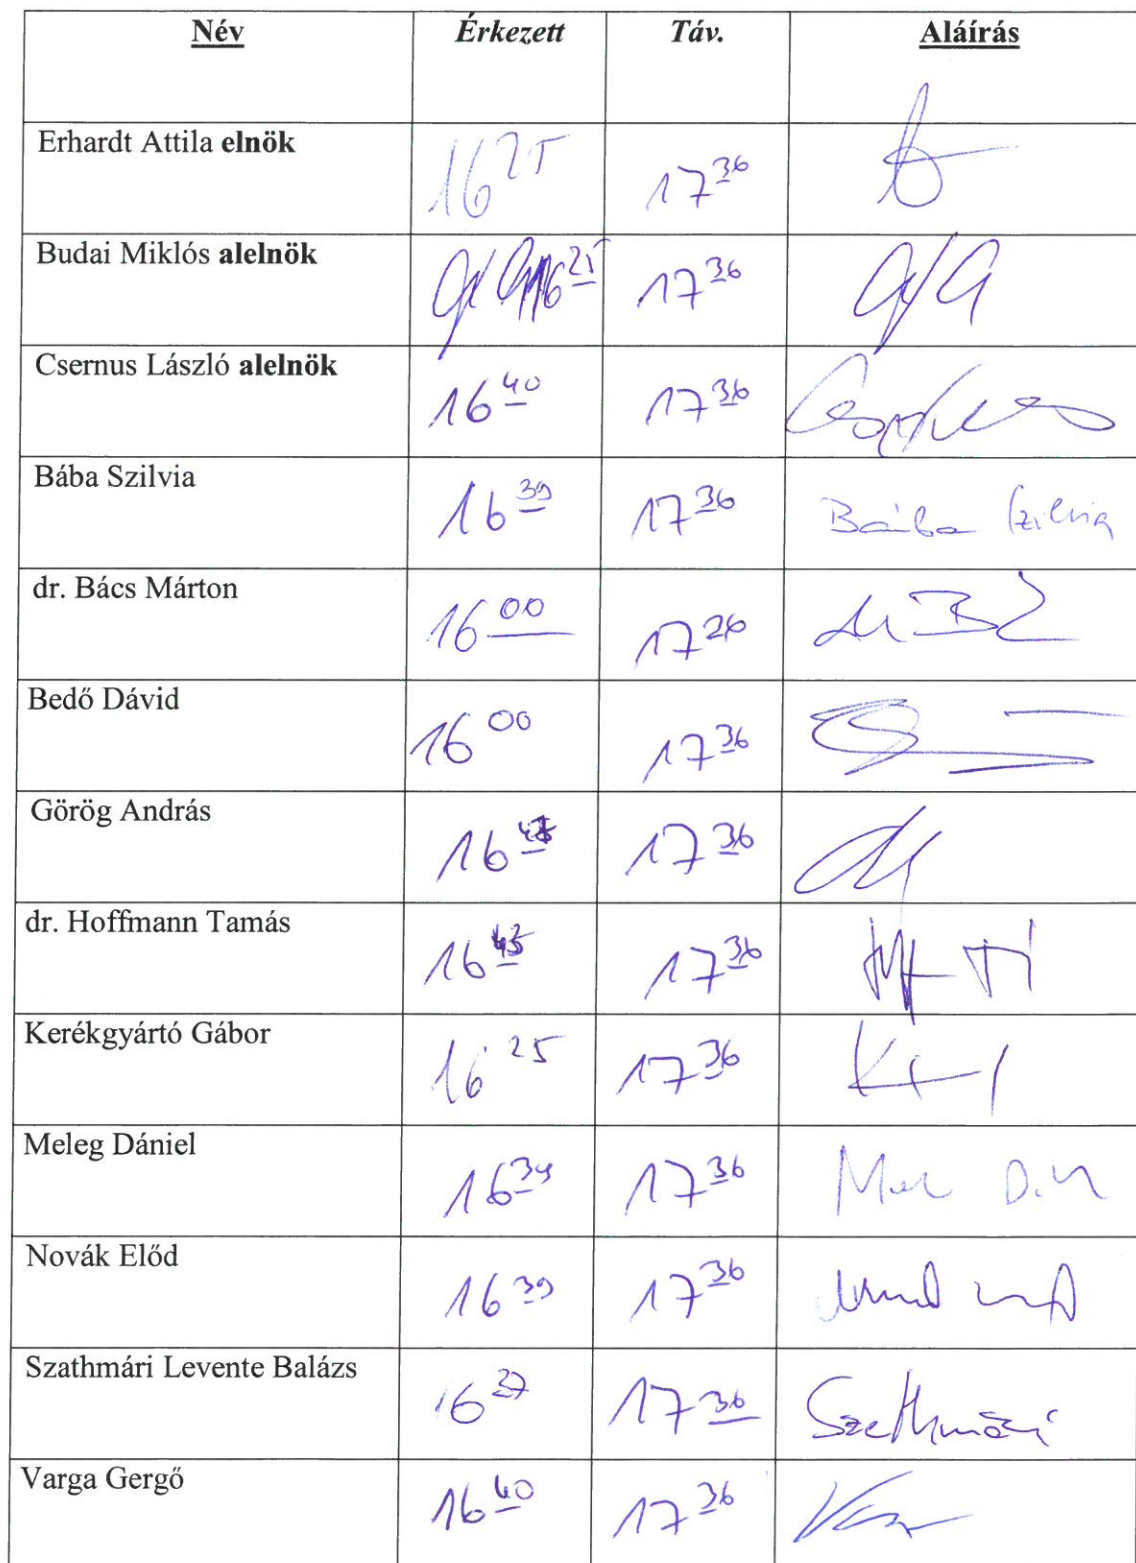 Név Érkezett Táv. Aláírás
Erhardt Attila elnök 16 25 17 36
Budai Miklós alelnök 16 25 17 36
Csernus László alelnök 16 40 17 36
Bába Szilvia 16 39 17 36 Bába Szilvia
dr. Bács Márton 16 00 17 26
Bedő Dávid 16 00 17 36
Görög András 16 17 36
dr. Hoffmann Tamás 16 17 36
Kerékgyártó Gábor 16 25 17 36
Meleg Dániel 16 34 17 36
Novák Előd 16 39 17 36
Szathmári Levente Balázs 16 37 17 36 Szathmári
Varga Gergő 16 40 17 36